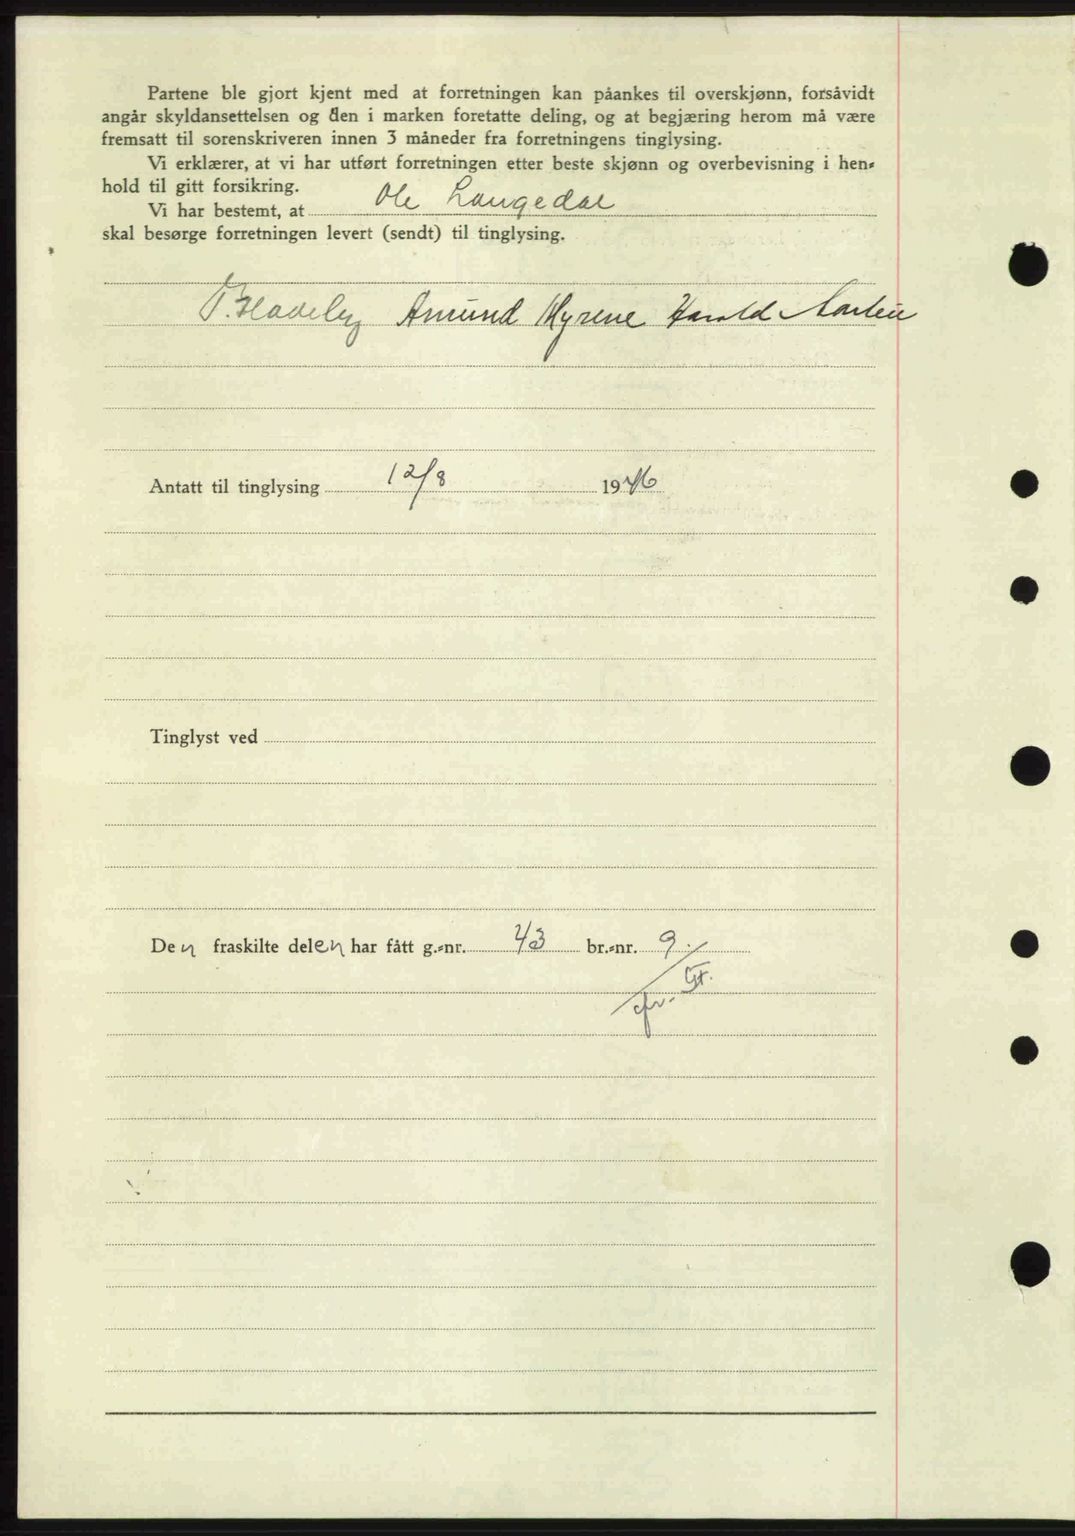 Partene ble gjort kjent med at forretningen kan påankes til overskjønn, forsåvidt
angår skyldansettelsen og den i marken foretatte deling, og at begjæring herom må være
fremsatt til sorenskriveren innen 3 måneder fra forretningens tinglysing.
Vi erklærer, at vi har utført forretningen etter beste skjønn og overbevisning i hen-
hold til gitt forsikring.
Vi har bestemt, at Ole Langedal
skal besørge forretningen levert (sendt) til tinglysing.
Amund Myrene Harald
Antatt til tinglysing 12/8 1946
Tinglyst ved
Den fraskilte delen har fått g.-nr. 43 br.-nr. 9.
cfr.